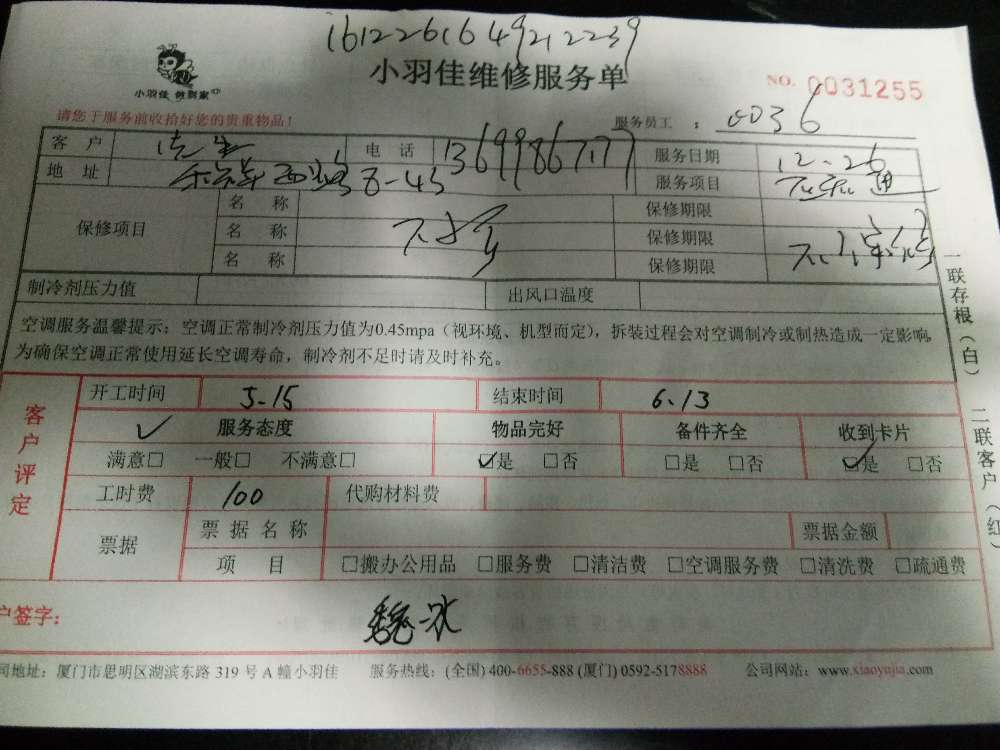 1612261649212239
小羽佳 做到家
小羽佳维修服务单
NO. 0031255
请您于服务前收拾好您的贵重物品！
服务员工： 0036
客 户 电 话 13699867177 服务日期 12-26
地 址 8-43 服务项目
保修项目 名 称 保修期限
名 称 保修期限
名 称 保修期限
制冷剂压力值 出风口温度
空调服务温馨提示：空调正常制冷剂压力值为0.45mpa（视环境、机型而定），拆装过程会对空调制冷或制热造成一定影响，
为确保空调正常使用延长空调寿命，制冷剂不足时请及时补充。
客户评定
开工时间 5-15 结束时间 6.13
✓ 服务态度 物品完好 备件齐全 收到卡片
满意□ 一般□ 不满意□ ☑是 □否 □是 □否 ☑是 □否
工时费 100 代购材料费
票据 票 据 名 称 票据金额
项 目 □搬办公用品 □服务费 □清洁费 □空调服务费 □清洗费 □疏通费
户签字： 魏冰
司地址：厦门市思明区湖滨东路 319 号 A 幢小羽佳 服务热线：(全国) 400-6655-888 (厦门) 0592-5178888 公司网站：www.xiaoyujia.com
一联存根（白） 二联客户（红）